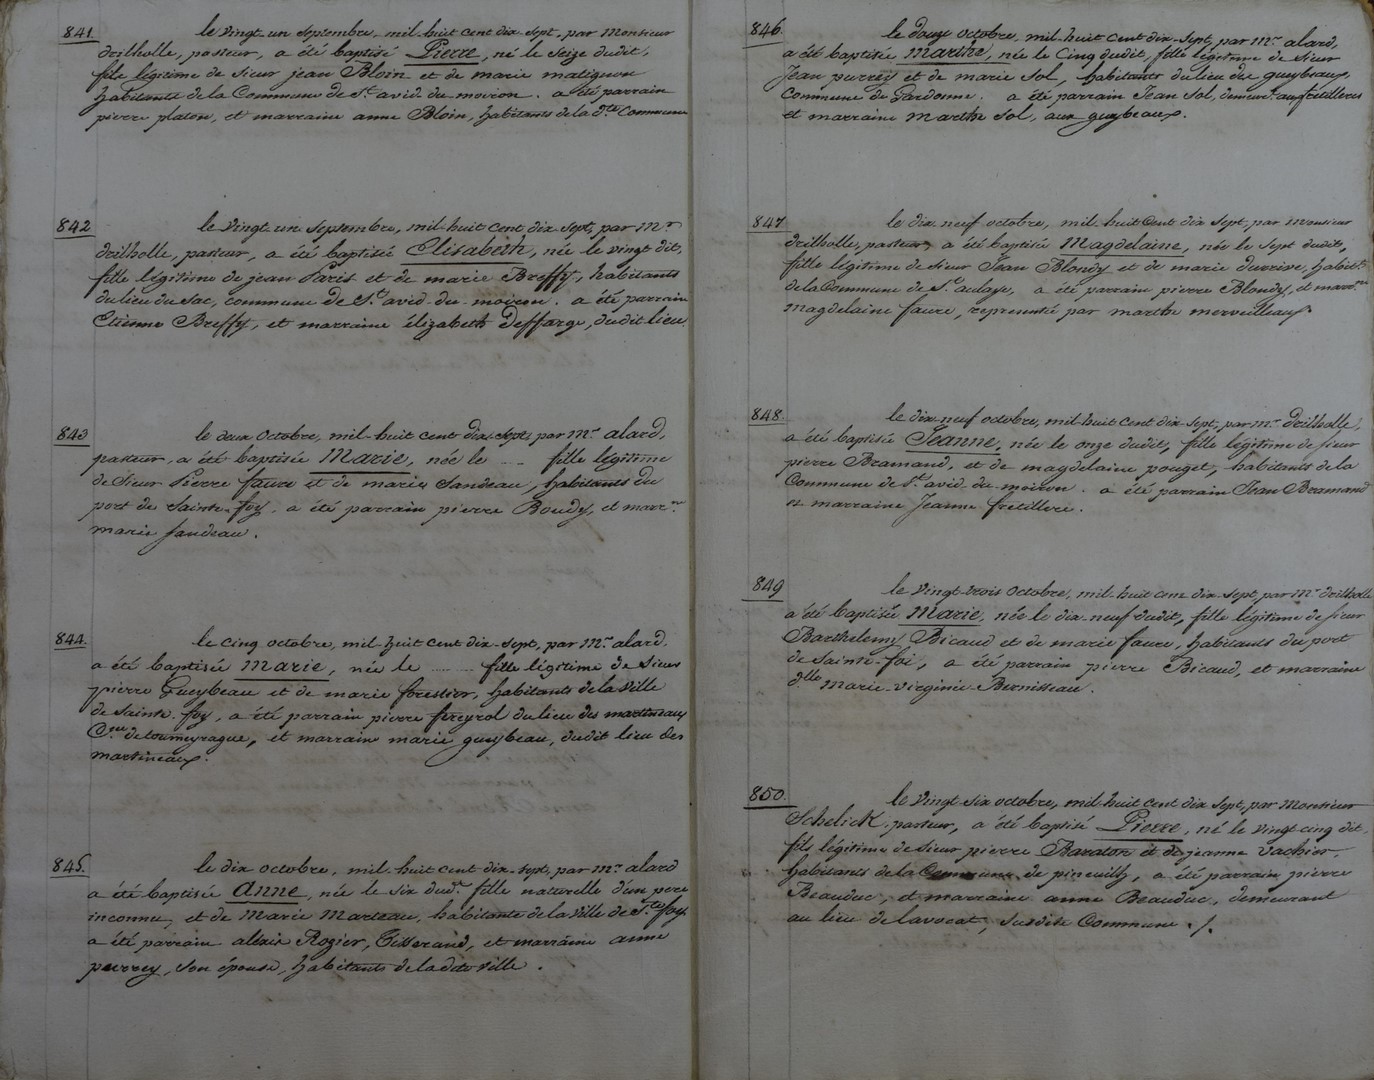 841. le vingt un septembre, mil-huit cent dix-sept, par Monsieur
drilholle, pasteur, a été baptisé Pierre, né le seize dudit,
fils légitime de sieur jean Bloin et de marie matignon
habitants de la Commune de St. avid du moiron. a été parrain
pierre platon, et marraine anne Bloin, habitants de la dte. Commune
842 le vingt un septembre, mil-huit cent dix sept, par Mr
drilholle, pasteur, a été baptisé Elisabeth, née le vingt dit,
fille légitime de jean Paris et de marie Breffy, habitants
du lieu du Sac, commune de St. avid-du-moiron. a été parrain
Etienne Breffy, et marraine élizabeth Deffarge, dudit lieu
843 le deux Octobre, mil-huit cent dix sept, par Mr. alard,
pasteur, a été baptisée Marie, née le .... fille légitime
de Sieur Pierre faure et de marie Sandeau, habitants du
port de Sainte-foy. a été parrain pierre Boudy, et marrne
marie Sandeau.
844. le cinq octobre, mil-huit cent dix-sept, par Mr. alard.
a été baptisée Marie, née le ........ fille légitime de Sieur
pierre Gueybeau et de marie forestier, habitants de la ville
de Sainte-foy, a été parrain pierre fereyrol du lieu des martineaux
Cne. de toumeyrague, et marraine marie gueybeau, dudit lieu des
martineaux.
845. le dix octobre, mil-huit cent dix-sept, par Mr. alard
a été baptisée Anne, née le Six dudt. fille naturelle d'un pere
inconnu, et de Marie Marteau, habitante de la ville de Ste foy.
a été parrain alexis Rozier, Tisserand, et marraine anne
purrey, son épouse, habitants de la dite ville.
846. le douze octobre, mil-huit cent dix-sept, par Mr. alard,
a été baptisée Marthe, née le Cinq dudit, fille légitime de Sieur
Jean purrey et de marie Sol, habitants du lieu des guybeaux,
Commune de Gardonne. a été parrain Jean Sol, demeurt. aux fretilleres
et marraine Marthe Sol, aux guybeaux.
847 le dix neuf octobre, mil-huit Cent dix Sept, par Monsieur
drilholle, pasteur, a été baptisée Magdelaine, née le Sept dudit,
fille légitime de Sieur Jean Blondy et de marie durrive, habitts
de la Commune de St. aulaye, a été parrain pierre Blondy, et marrne
magdelaine faure, représenté par marthe merveilleau.
848. le dix-neuf octobre, mil-huit cent dix-Sept, par Mr. drilholle,
a été baptisée Jeanne, née le onze dudit, fille légitime de Sieur
pierre Bramand, et de magdelaine pouget, habitants de la
Commune de St. avid-du-moiron. a été parrain Jean Bramand
et marraine Jeanne fretillere.
849 le vingt-trois Octobre, mil-huit cent dix-Sept, par Mr. drilholle
a été baptisée Marie, née le dix-neuf dudit, fille légitime de Sieur
Barthelemy Bicaud et de marie faure, habitants du port
de Sainte-foi, a été parrain pierre Bicaud, et marraine
dlle Marie-virginie-Bernisseau.
850. le vingt six octobre, mil-huit cent dix Sept, par Monsieur
Schelick, pasteur, a été baptisé Pierre, né le vingt-cinq dit,
fils légitime de Sieur pierre Baraton et de jeanne vachier,
habitants de la Commune de pineuilh, a été parrain pierre
Beauduc, et marraine anne Beauduc, demeurant
au lieu de lavocat, Susdite Commune ./.